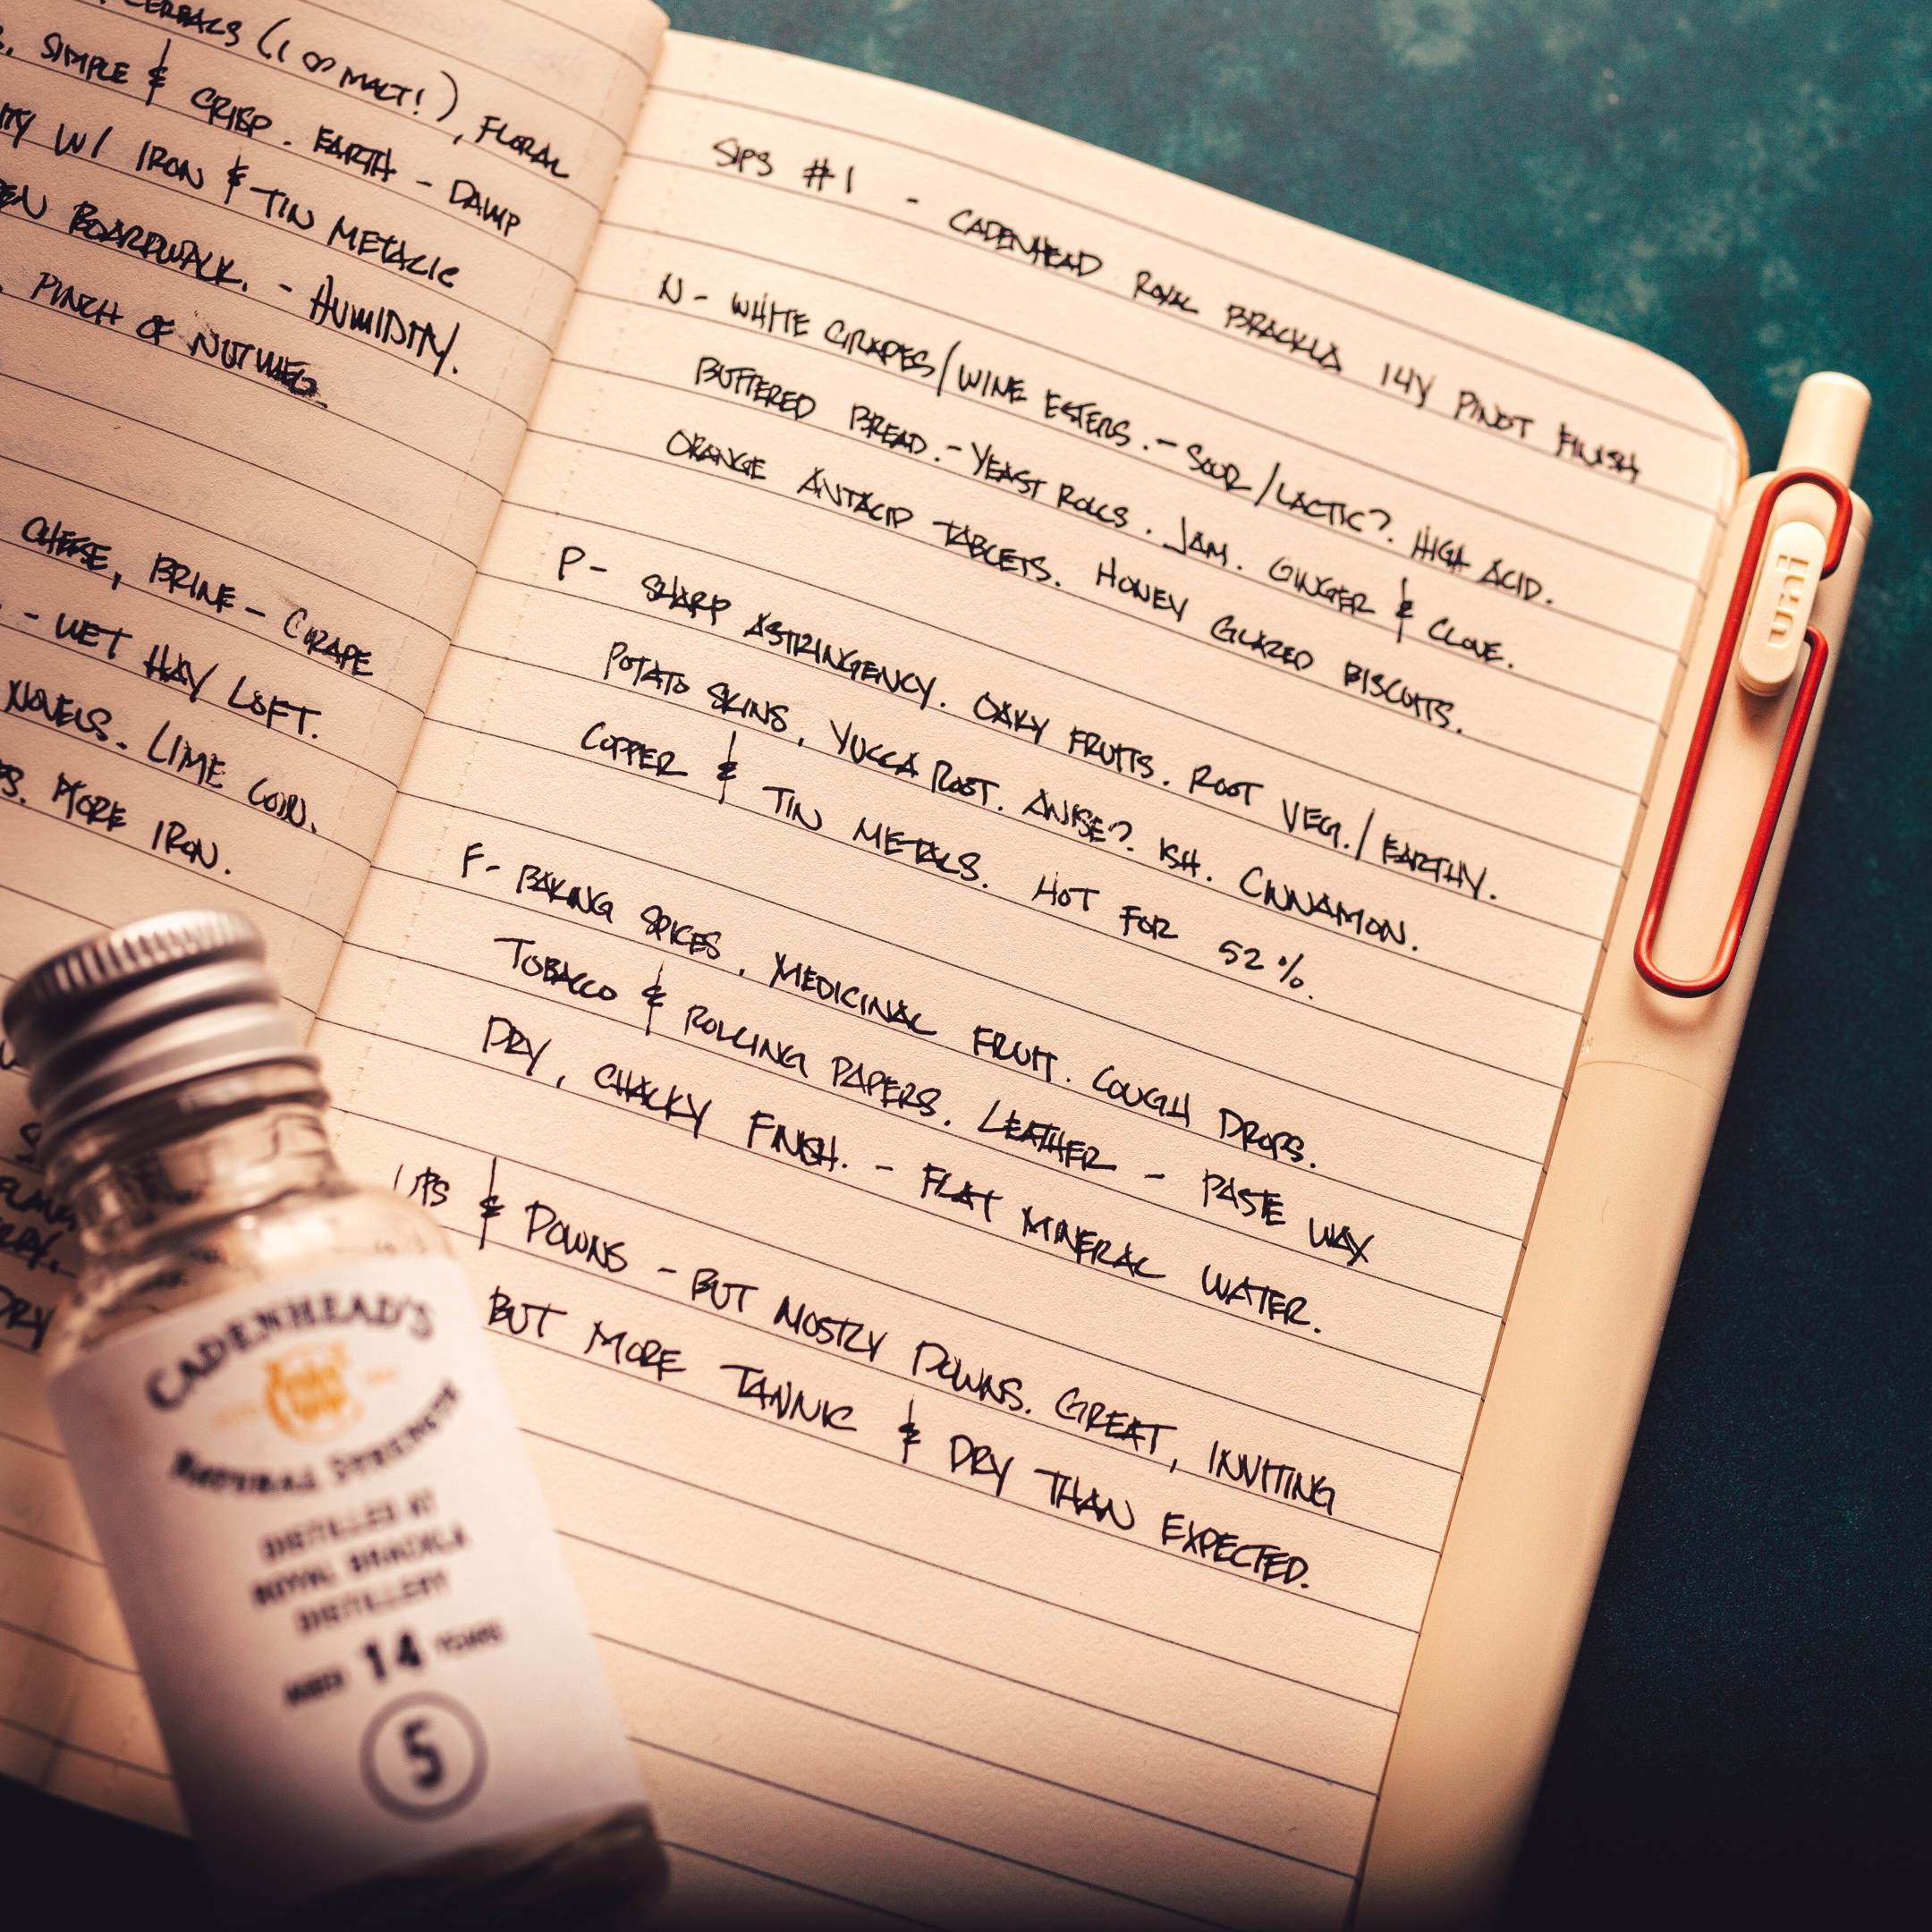 CEREALS (1 OO MALT!), FLORAL
SIMPLE & CRISP. EARTH - DAMP
W/ IRON & TIN METALIC
BOARDWALK. - HUMIDITY.
PINCH OF NUTMEG.
CHEESE, BRINE - GRAPE
- WET HAY LOFT.
NOVELS. LIME COIN.
MORE IRON.
DRY
SIPS #1 - CADENHEAD ROYAL BRACKLA 14Y PINOT FINISH
N - WHITE GRAPES/WINE ESTERS. - SOUR/LACTIC?. HIGH ACID.
BUTTERED BREAD. - YEAST ROLLS. JAM. GINGER & CLOVE.
ORANGE ANTACID TABLETS. HONEY GLAZED BISCUITS.
P - SHARP ASTRINGENCY. OAKY FRUITS. ROOT VEG./EARTHY.
POTATO SKINS, YUCCA ROOT. ANISE?. ISH. CINNAMON.
COPPER & TIN METALS. HOT FOR 52%.
F - BAKING SPICES, MEDICINAL FRUIT. COUGH DROPS.
TOBACCO & ROLLING PAPERS. LEATHER - PASTE WAX
DRY, CHALKY FINISH. - FLAT MINERAL WATER.
UPS & DOWNS - BUT MOSTLY DOWNS. GREAT, INVITING
BUT MORE TANNIC & DRY THAN EXPECTED.
uni
CADENHEAD'S
NATURAL STRENGTH
DISTILLED AT
ROYAL BRACKLA
DISTILLERY
AGED 14 YEARS
5